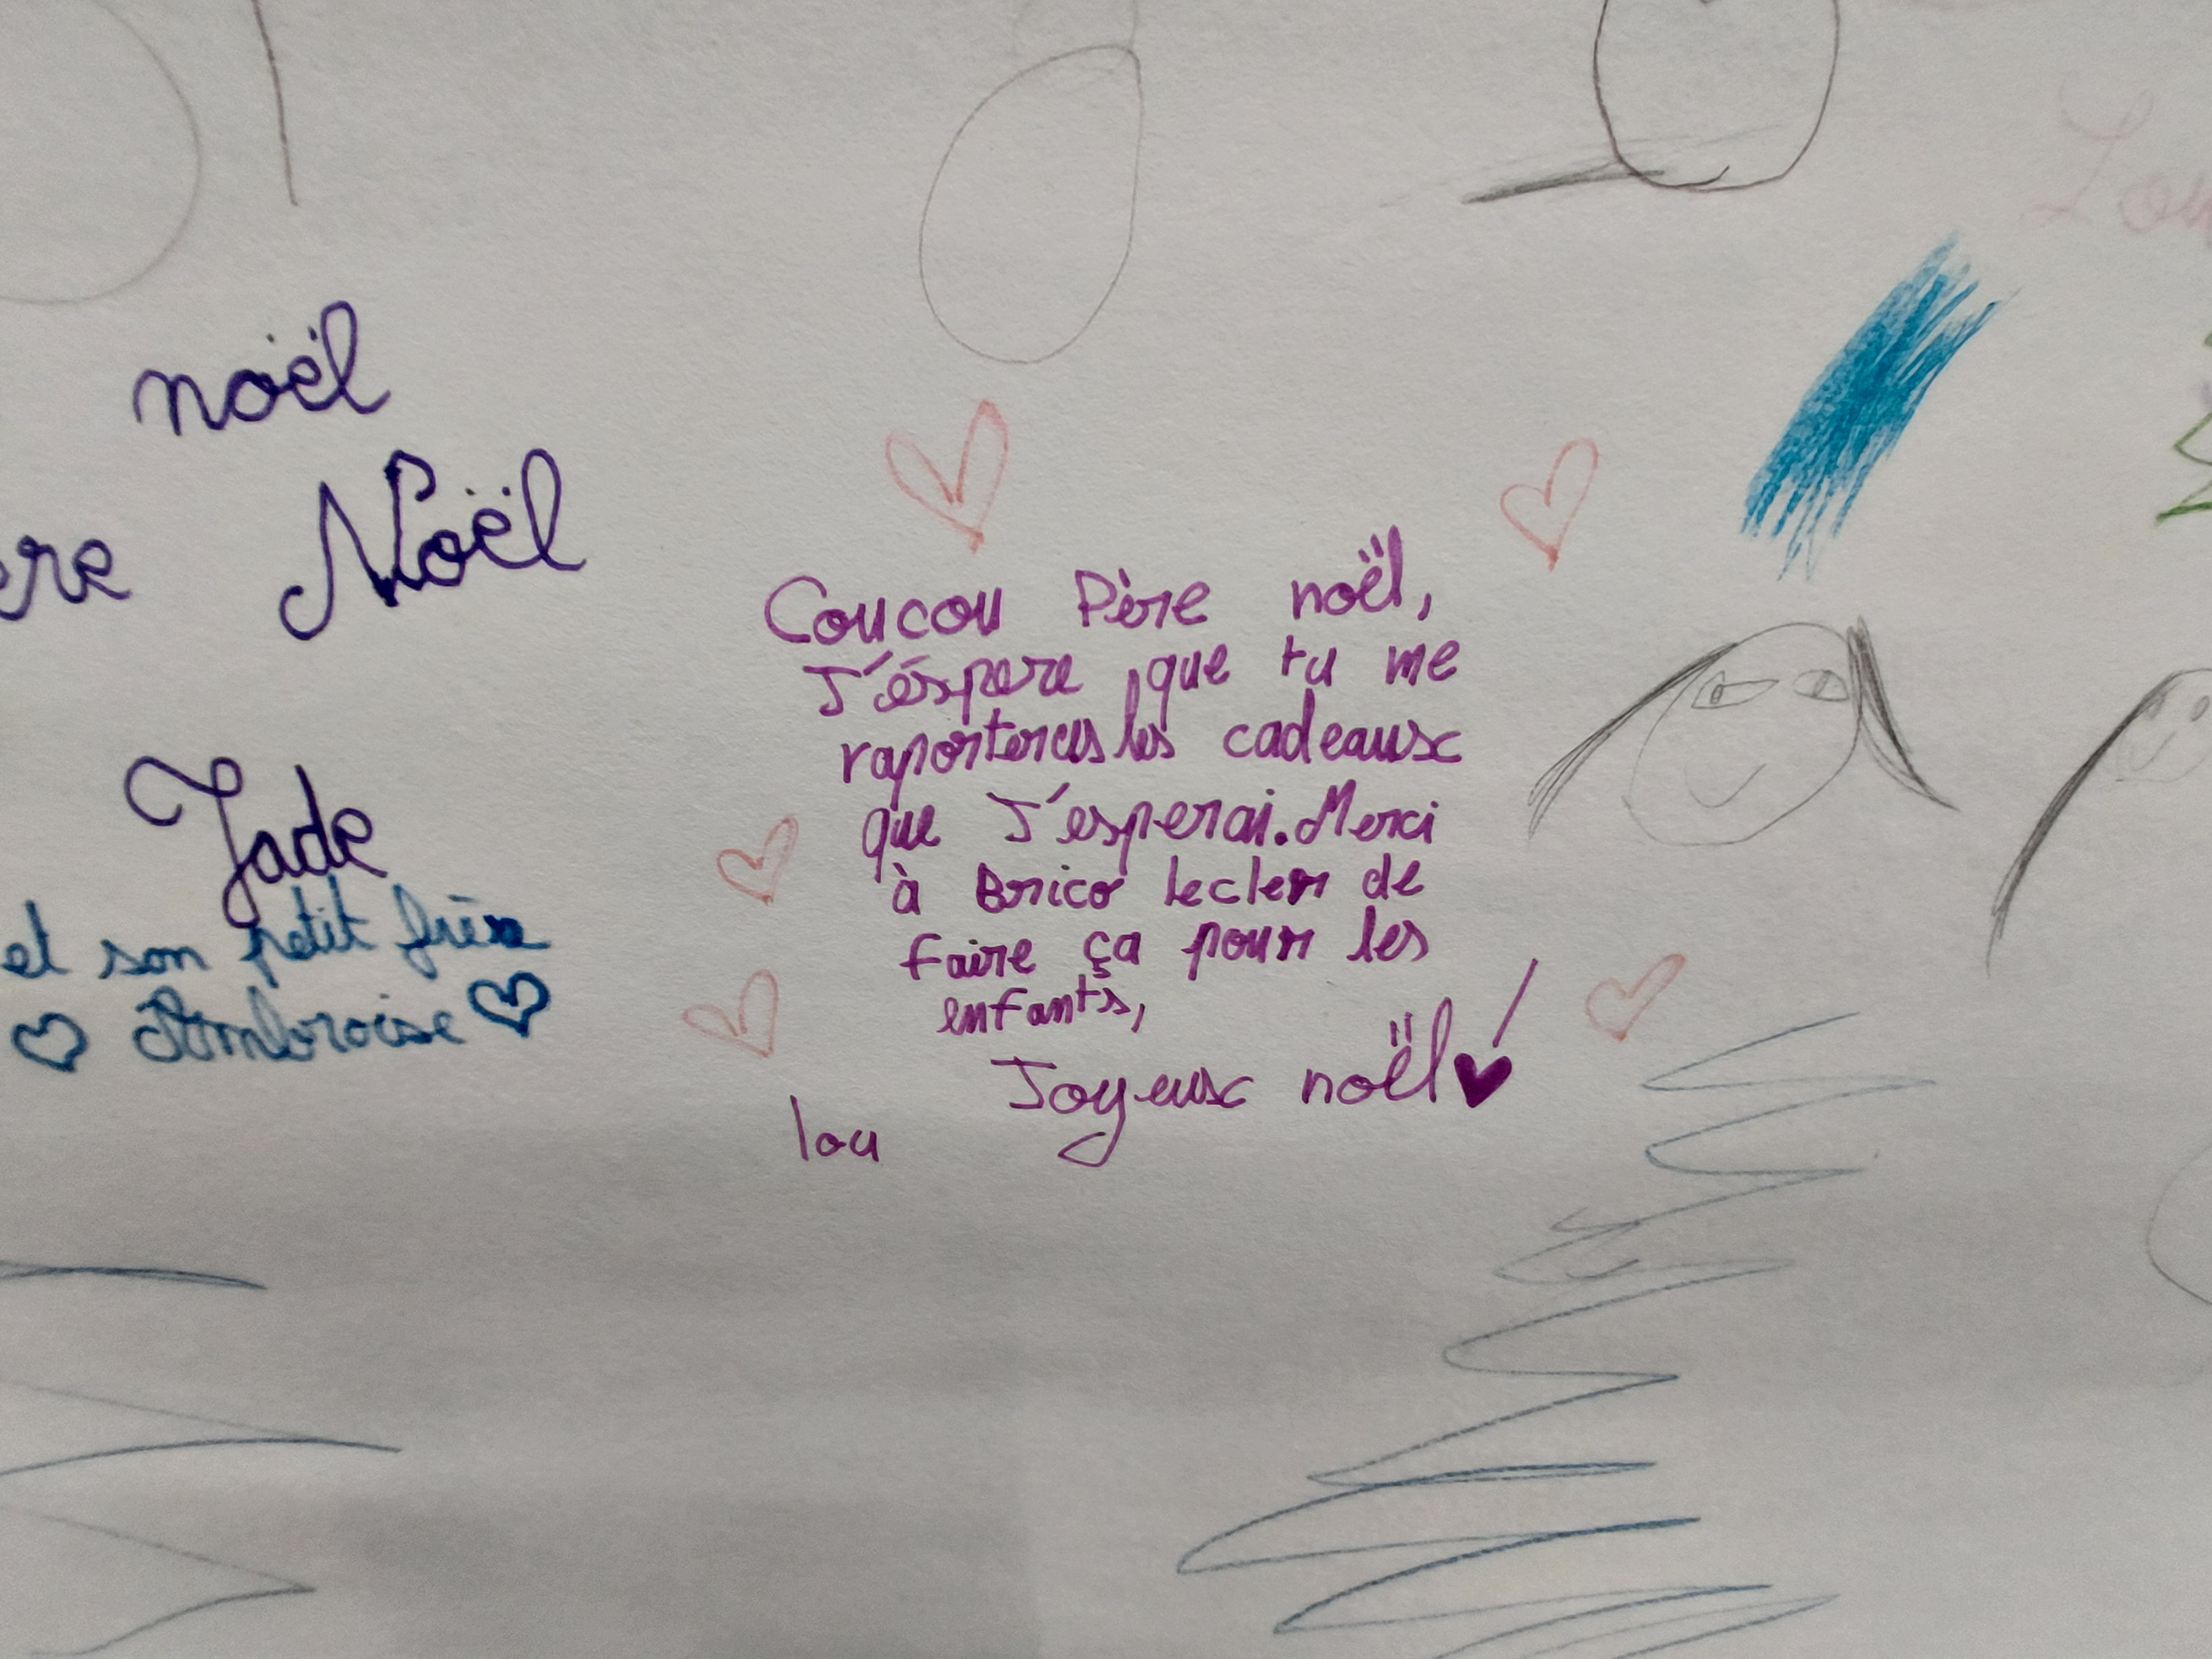 noël
ère Noël
Jade
et son petit frère
Ambroise
Coucou Père noël,
J'éspere que tu me
raporteras les cadeaux
que J'esperai. Merci
à Brico Lecler de
faire ça pour les
enfants,
Joyeux noël
lou